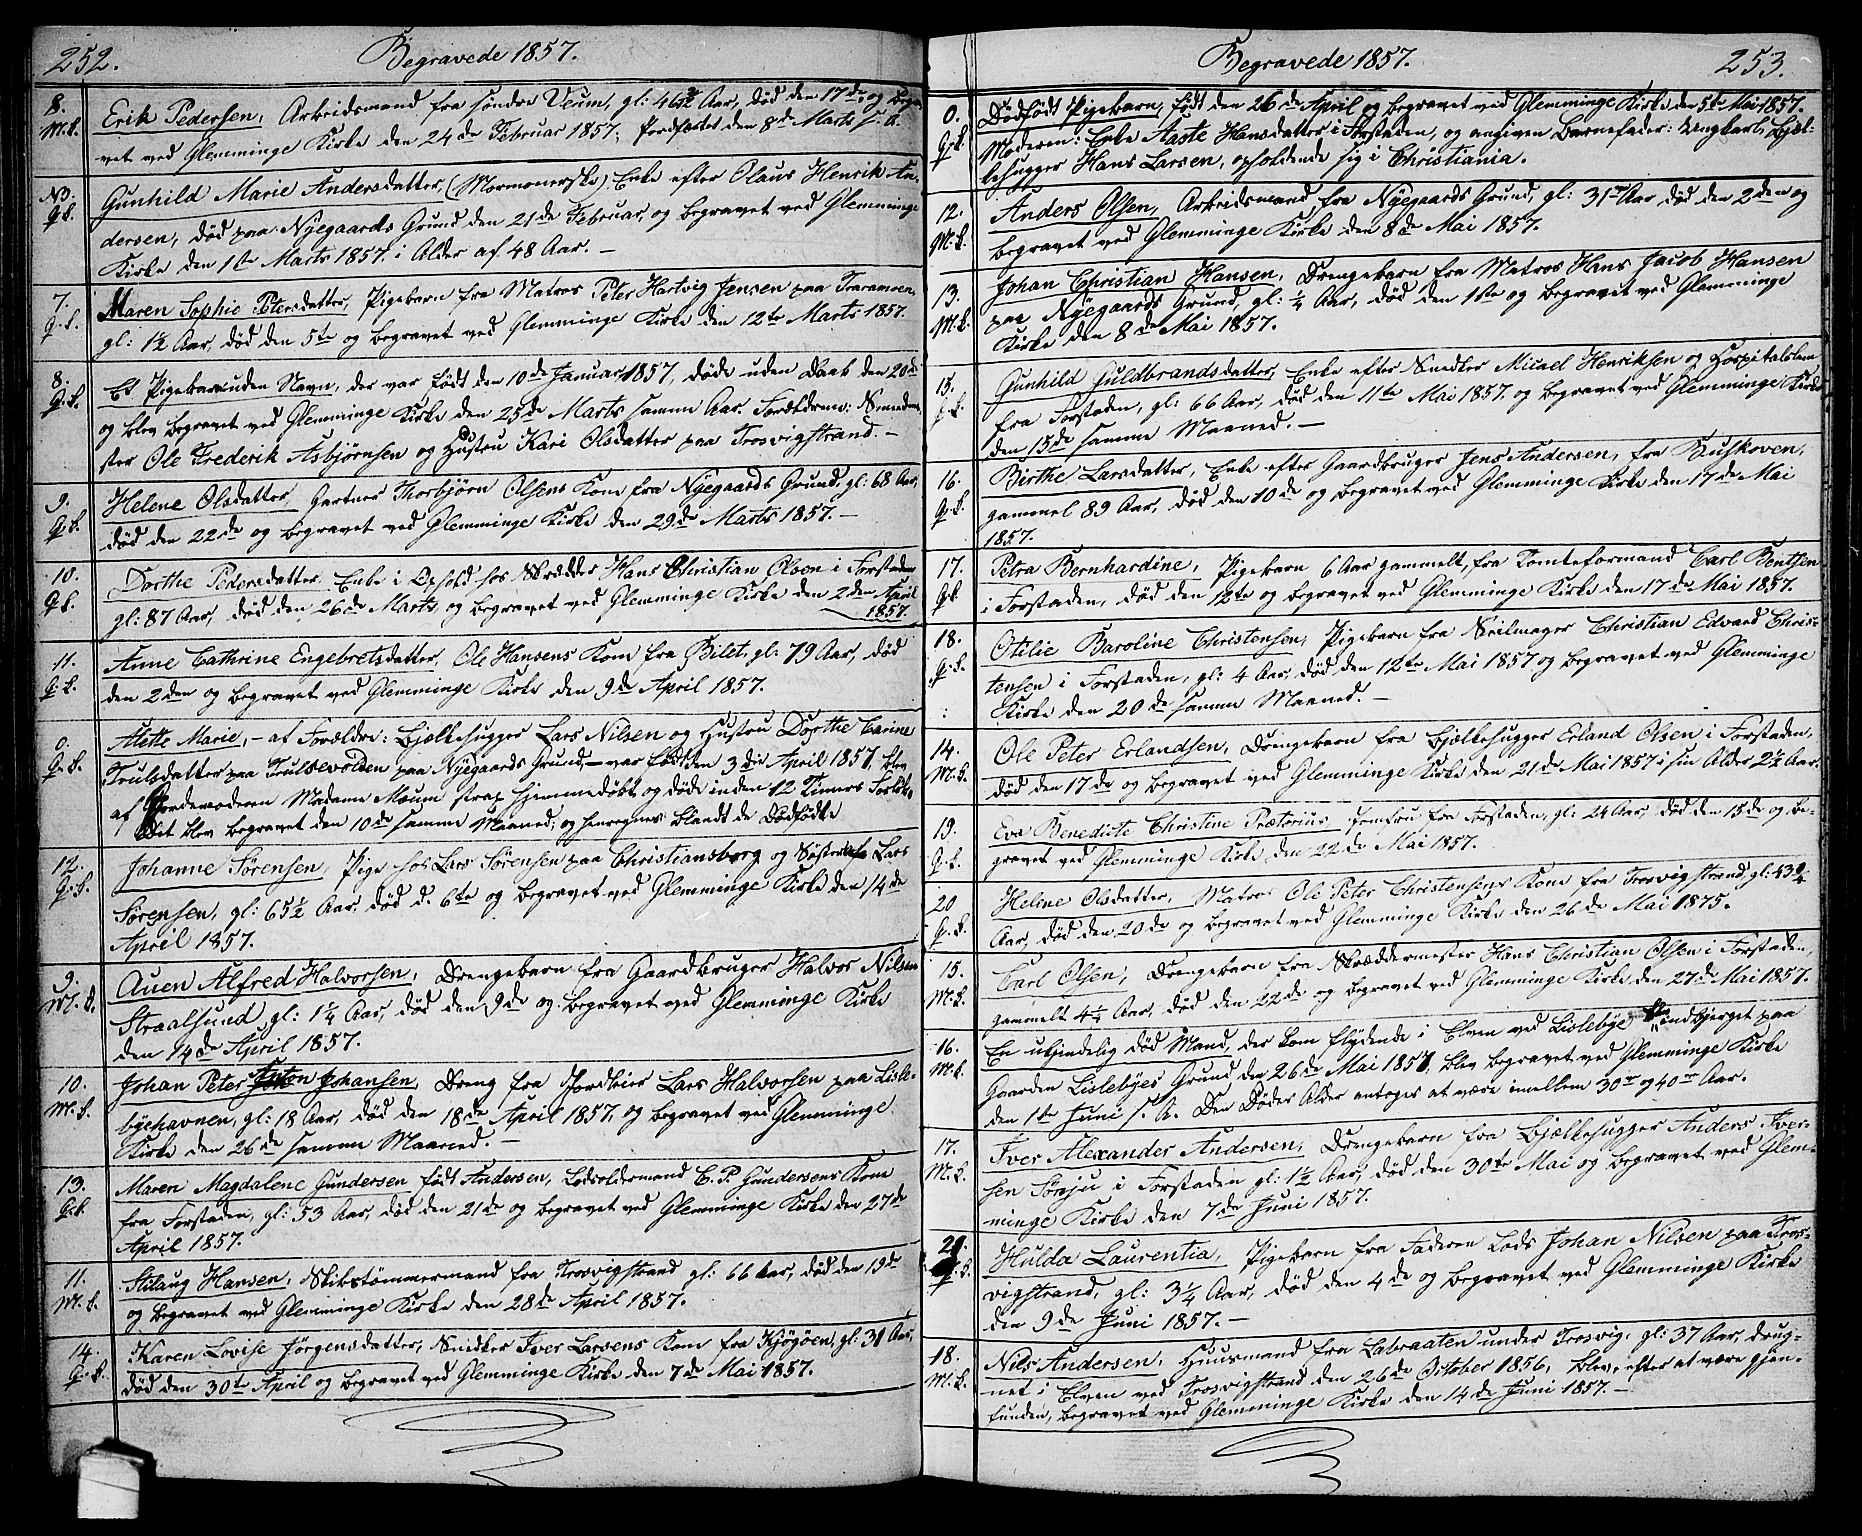 252.
Begravede 1857.
8.
M.k.
Erik Pedersen, Arbeidsmand fra søndre Veum, gl: 46 3/4 Aar, død den 17de og begra-
vet ved Glemminge Kirke den 24de Februar 1857; Jordfæstet den 8de Marts s. A.
N3.
Q.k.
Gunhild Marie Andersdatter, (Mormonerske) Enke efter Olaus Henrik An-
dersen, død paa Nyegaards Grund den 21de Februar, og begravet ved Glemminge
Kirke den 1ste Marts 1857. i Alder af 48 Aar. —
7.
Q.k.
Maren Sophie Petersdatter, Pigebarn fra Matros Peter Hartvig Jensen paa Traramoen,
gl: 1½ Aar, død den 5te og begravet ved Glemminge Kirke den 12te Marts 1857.
8.
Q.k.
Et Pigebarn uden Navn, der var født den 10de Januar 1857, døde uden Daab den 20de
og blev begravet ved Glemminge Kirke den 25de Marts samme Aar. Forældrene: Smedme-
ster Ole Frederik Asbjørnsen og Hustru Kari Olsdatter paa Trosvigstrand. —
9.
Q.k.
Helene Olsdatter, Gartner Thorbjørn Olsens Kone fra Nyegaards Grund, gl: 68 Aar,
død den 22de og begravet ved Glemminge Kirke den 29de Marts 1857. —
10.
Q.k.
Dorthe Pedersdatter, Enke i Ophold hos Skrædder Hans Christian Olsen i Forstaden
gl: 87 Aar, død den 26de Marts, og begravet ved Glemminge Kirke den 2den April
1857.
11.
Q.k.
Anne Cathrine Engebretsdatter, Ole Hansens Kone fra Bilet, gl: 79 Aar, død
den 2den og begravet ved Glemminge Kirke den 9de April 1857.
0.
Q.k.
Alette Marie, — af Forældre: Bjælkehugger Lars Nilsen og Hustru Dorthe Carine
Trulsdatter paa Trulsevolden paa Nyegaards Grund, — var født den 3die April 1857, blev
af Jordemoderen Madame Mæum strax hjemmedøbt og døde inden 12 Timers Forløb.
Det blev begravet den 10de samme Maaned, og henregnes blandt de Dødfødte
12.
Q.k.
Johanne Sørensen, Pige hos Lars Sørensen paa Christiansborg og Søster Lars
Sørensen, gl: 65½ Aar, død d. 6te og begravet ved Glemminge Kirke den 14de
April 1857.
9.
M.k.
Auen Alfred Halvorsen, Drengebarn fra Gaardbruger Halvor Nilsen
Straalsund, gl: 1¼ Aar, død den 9de og begravet ved Glemminge Kirke
den 14de April 1857.
10.
M.k.
Johan Peter Anton Johansen, Dreng fra Lars Halvorsen paa Lisle-
byehavnen, gl: 18 Aar, død den 18de April 1857, og begravet ved Glemminge
Kirke den 26de samme Maaned. —
13.
Q.k.
Maren Magdalene Gundersen født Andersen, Lodsoldermand C. P. Gundersens Kone
fra Forstaden, gl: 53 Aar, død den 21de og begravet ved Glemminge Kirke den 27de
April 1857.
11.
M.k.
Stilaug Hansen, Skibstømmermand fra Trosvigstrand gl: 66 Aar, død den 19de
og begravet ved Glemminge Kirke den 28de April 1857.
14.
Q.k.
Karen Lovise Jørgensdatter, Snedker Iver Larsens Kone fra Kjøgøen, gl: 31 Aar,
død den 30te April og begravet ved Glemminge Kirke den 7de Mai 1857.
Begravede 1857.
253.
0.
Q.k.
Dødfødt Pigebarn, født den 26de April og begravet ved Glemminge Kirke den 5te Mai 1857.
Moderen: Enke Aaste Hansdatter i Forstaden, og angiven Barnefader: Ungkarl, Bjæl-
kehugger Hans Larsen, opholdende sig i Christiania.
12.
M.k.
Anders Olsen, Arbeidsmand fra Nyegaards Grund, gl: 31te Aar død den 2den og
begravet ved Glemminge Kirke den 8de Mai 1857.
13.
M.k.
Johan Christian Hansen, Drengebarn fra Matros Hans Jacob Hansen
paa Nyegaards Grund, gl: ¼ Aar, død den 1ste og begravet ved Glemminge
Kirke den 8de Mai 1857.
15.
Q.k.
Gunhild Guldbrandsdatter, Enke efter Snedker Micael Henriksen og Hospitalslem
fra Forstaden, gl: 66 Aar, død den 11te Mai 1857. og begravet ved Glemminge Kirke
den 15de samme Maaned. —
16.
Q.k.
Birthe Larsdatter, Enke efter Gaardbruger Jens Andersen, fra Buskoven,
gammel 89 Aar, død den 10de og begravet ved Glemminge Kirke den 17de Mai
1857.
17.
Q.k.
Petra Bernhardine, Pigebarn 6 Aar gammelt, fra Tomteformand Carl Bentsen
i Forstaden, død den 12te og begravet ved Glemminge Kirke den 17de Mai 1857.
18.
Q.k.
Otilie Baroline Christensen, Pigebarn fra Seilmager Christian Edvard Chris-
tensen i Forstaden, gl: 4 Aar, død den 12te Mai 1857 og begravet ved Glemminge
Kirke den 20de samme Maaned. —
14.
M.k.
Ole Peter Erlandsen, Drengebarn fra Bjælkehugger Erland Olsen i Forstaden,
død den 17de og begravet ved Glemminge Kirke den 21de Mai 1857 i sin Alder 2½ Aar.
19.
Q.k.
Eva Benedicte Christine Prætorius, Jomfru fra Forstaden, gl: 24 Aar, død den 15de og be-
gravet ved Glemminge Kirke den 22de Mai 1857.
20
Q.k.
Heline Olsdatter, Matros Ole Peter Christensens Kone fra Trosvigstrand, gl: 43 3/4
Aar, død den 20de og begravet ved Glemminge Kirke den 26de Mai 1875.
15.
M.k.
Carl Olsen, Drengebarn fra Skræddermester Hans Christian Olsen i Forstaden,
gammelt 4¼ Aar, død den 22de og begravet ved Glemminge Kirke den 27de Mai 1857.
16.
M.k.
En ukjendelig død Mand, der kom flydende i Elven ved Lislebye indbjerget paa
Gaarden Lislebyes Grund den 26de Mai 1857, blev begravet ved Glemminge Kirke
den 1ste Juni s. A. Den Dødes Alder antoges at være imellem 30te og 40te Aar.
17.
M.k.
Iver Alexander Andersen, Drengebarn fra Bjælkehugger Anders Iver-
sen Sonju i Forstaden gl: 1½ Aar, død den 30te Mai og begravet ved Glem-
minge Kirke den 7de Juni 1857.
21.
Q.k.
Hulda Laurentia, Pigebarn fra Faderen Lods Johan Nilsen paa Tros-
vigstrand, gl: 3¼ Aar, død den 4de og begravet ved Glemminge Kirke
den 9de Juni 1857. —
18.
M.k.
Nils Andersen, Huusmand fra Labraaten under Trosvig, gl: 37 Aar, drug-
net i Elven ved Trosvigstrand den 26de October 1856, blev, efter at være gjen-
funden, begravet ved Glemminge Kirke den 14de Juni 1857. —